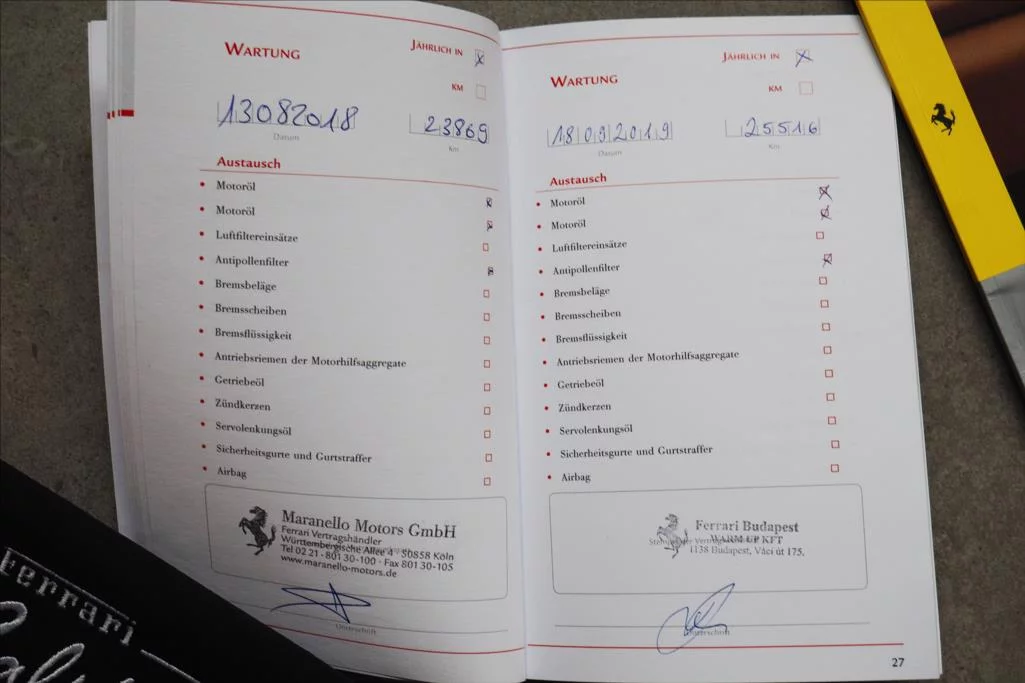 WARTUNG
JÄHRLICH IN
KM
13082018
23869
Datum
Km
Austausch
Motoröl
Motoröl
Luftfiltereinsätze
Antipollenfilter
Bremsbeläge
Bremsscheiben
Bremsflüssigkeit
Antriebsriemen der Motorhilfsaggregate
Getriebeöl
Zündkerzen
Servolenkungsöl
Sicherheitsgurte und Gurtstraffer
Airbag
Maranello Motors GmbH
Ferrari Vertragshändler
Württembergische Allee 4 · 50858 Köln
Tel 02 21 - 801 30-100 · Fax 801 30-105
www.maranello-motors.de
Unterschrift
WARTUNG
JÄHRLICH IN
KM
18092019
25516
Datum
Km
Austausch
Motoröl
Motoröl
Luftfiltereinsätze
Antipollenfilter
Bremsbeläge
Bremsscheiben
Bremsflüssigkeit
Antriebsriemen der Motorhilfsaggregate
Getriebeöl
Zündkerzen
Servolenkungsöl
Sicherheitsgurte und Gurtstraffer
Airbag
Ferrari Budapest
WARM UP KFT
1138 Budapest, Váci út 175.
Unterschrift
27
Ferrari